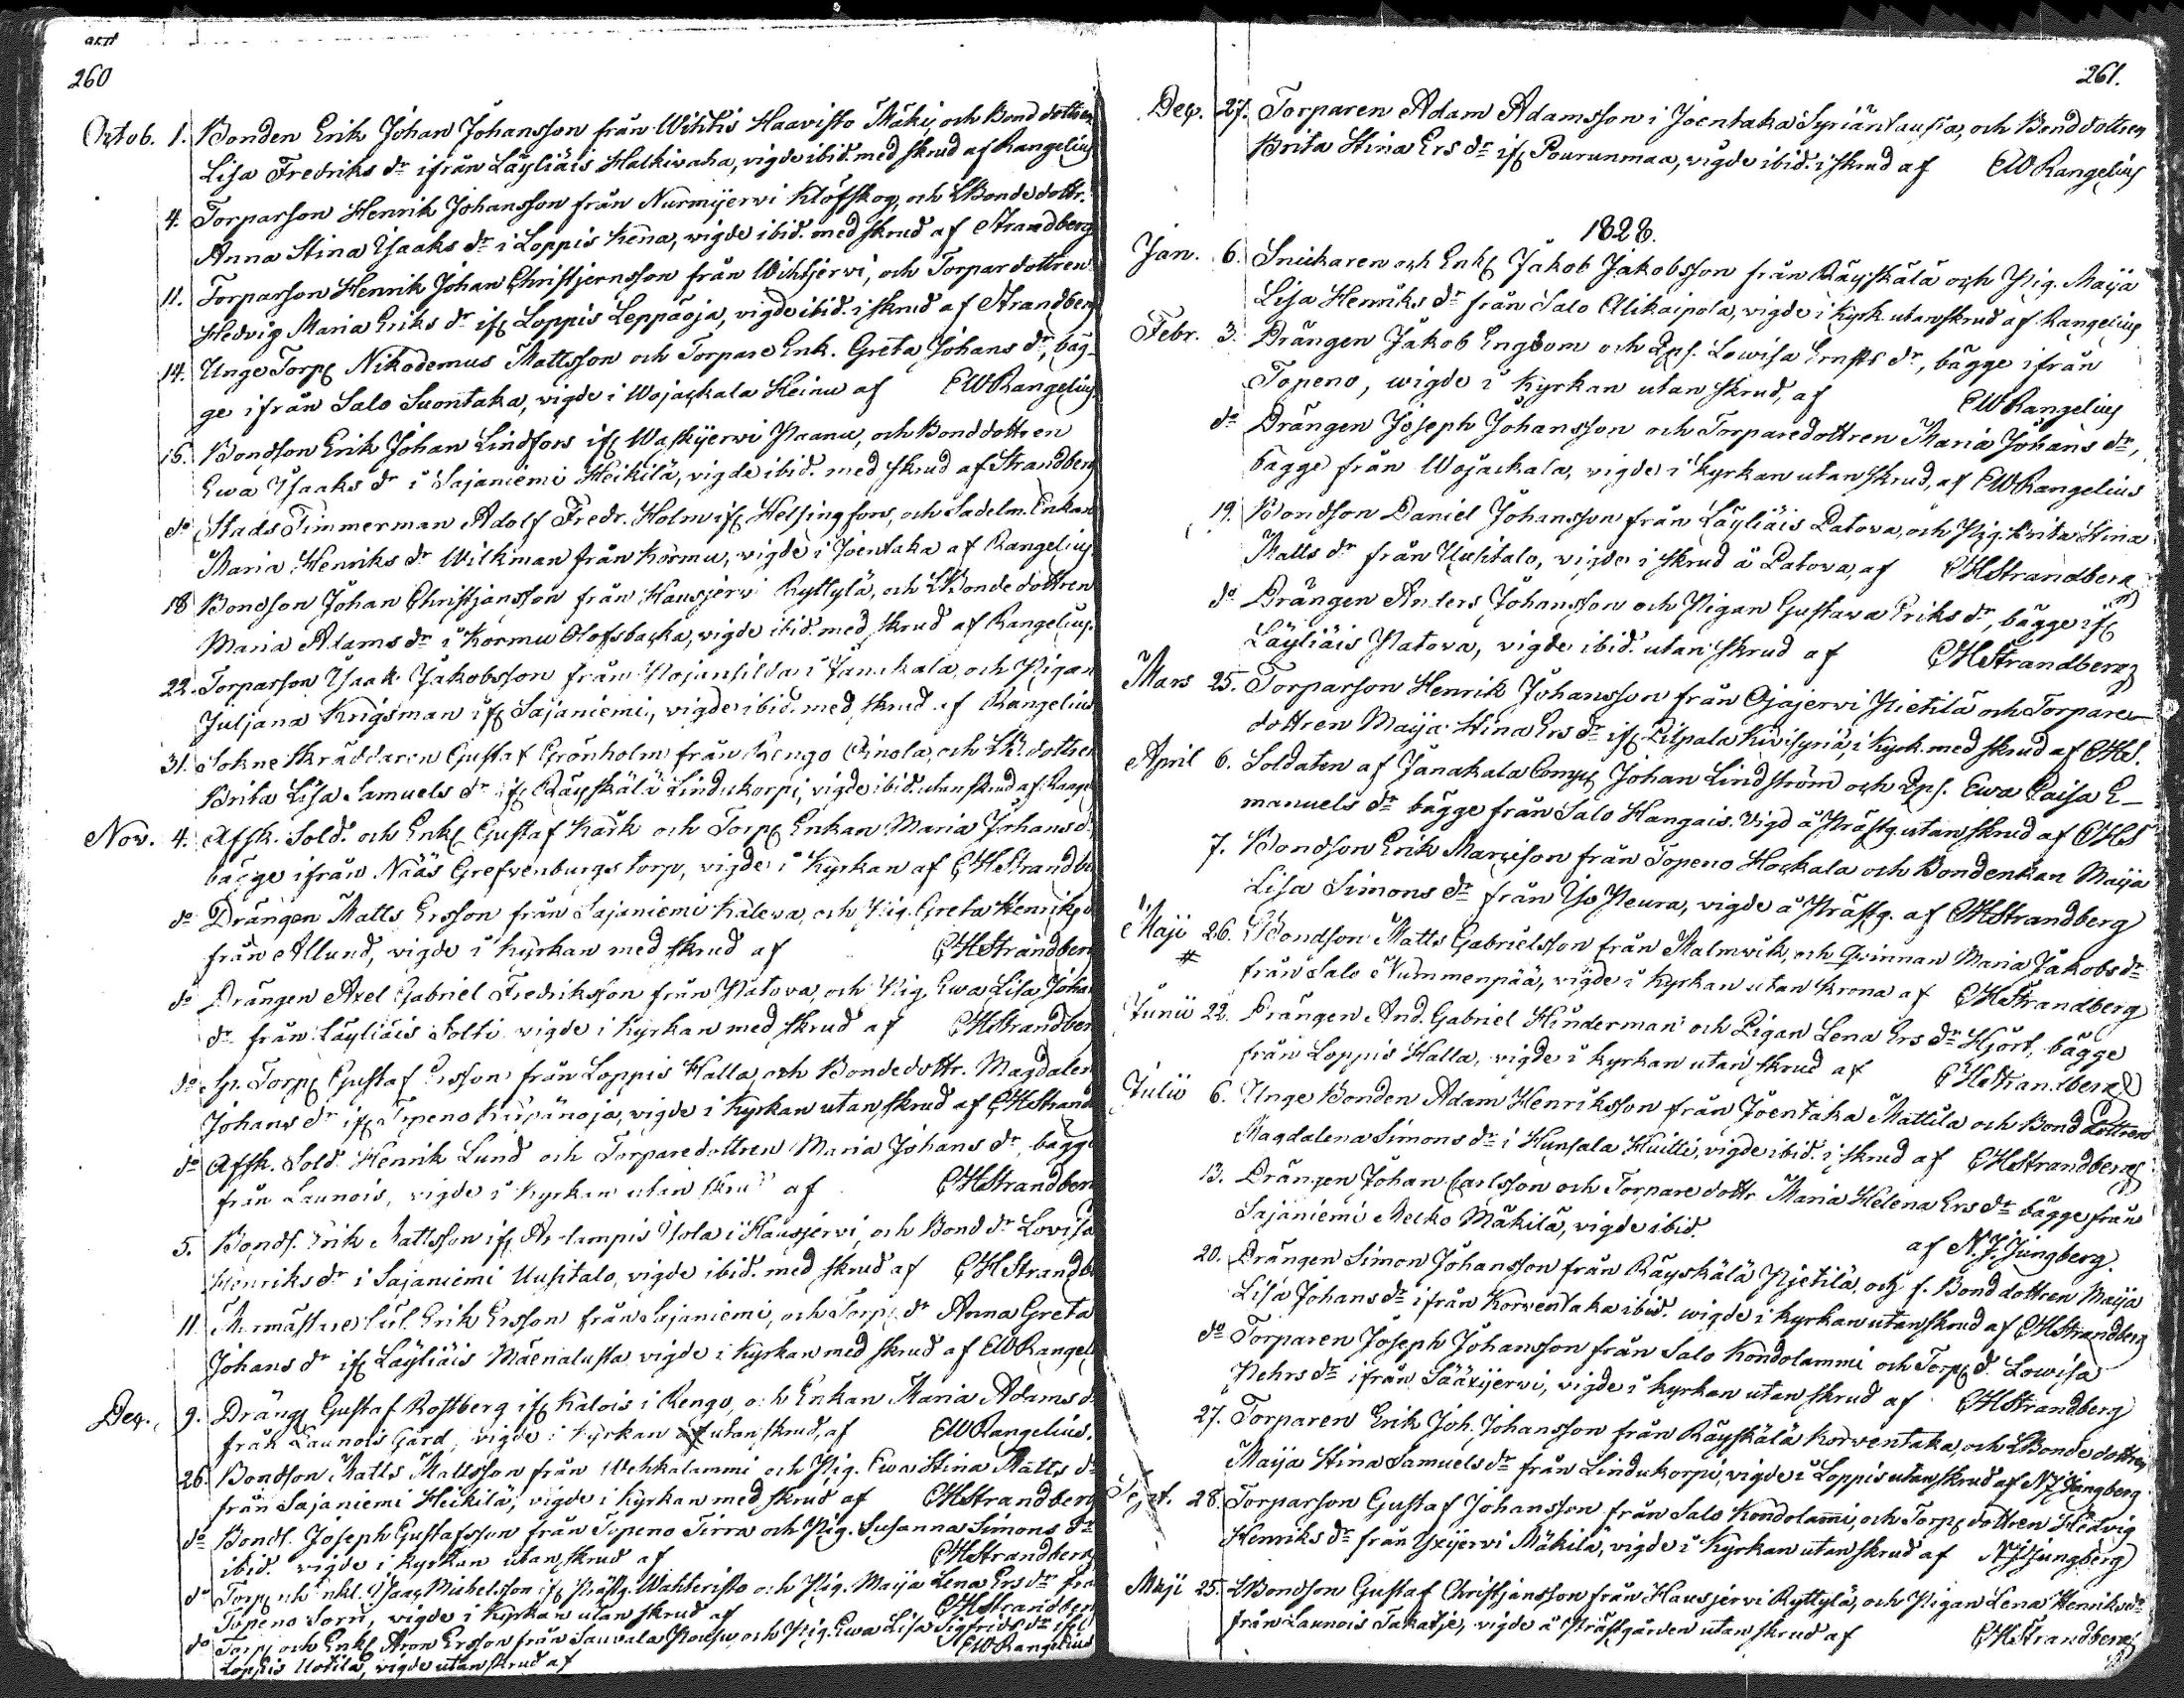 260
Octob. 1. Bonden Erik Johan Johansson från Wihtis Haavisto Mäki, och Bond dottren
Lisa Fredriks dr ifrån Läyliäis Halkivaha, vigde ibid. med skrud af Rangelius
4. Torparson Henrik Johansson från Nurmijervi Klöfskog, och LBondedottr.
Anna Stina Isaaks dr i Loppis Kena, vigde ibid. med skrud af Strandberg
11. Torparson Henrik Johan Christjernsson från Wihtjervi, och Torpardottren
Hedvig Maria Eriks dr ifr Loppis Leppäoja, vigde ibid. i skrud af Strandberg
14. Unge Torp. Nikodemus Mattsson och Torpare Enk. Greta Johans dr, bäg-
ge ifrån Salo Suontaka, vigde i Wojackala Heinu af EWRangelius.
15. Bondson Erik Johan Lindfors ifr Waskijervi Paanu, och Bonddottren
Ewa Isaaks dr i Sajaniemi Heikilä, vigde ibid. med skrud af Strandberg
do Stads Timmerman Adolf Fredr. Holm ifr Helsingfors, och Sadelm. Enkan
Maria Henriks dr Wilkman från Kormu, vigde i Joentaka af Rangelius.
18 Bondson Johan Christjansson från Hausjervi Ryttylä, och LBondedottren
Maria Adams dr i Kormu Olofsbacka, vigde ibid. med skrud af Rangelius.
22. Torparson Isaak Jakobsson från i Janakala, och Pigan
Juljana Krigsman ifr Sajaniemi, vigde ibid. med skrud af Rangelius
31. Sokne Skräddaren Gustaf Grönholm från Rengo Ahola, och dottren
Brita Lisa Samuels dr ifr Räyskälä Lindukorpi, vigde ibid. utan skrud af Range
Nov. 4. Afsk. Sold. och Enkl Gustaf Kark och Torp Enkan Maria Johans d
bägge ifrån Nääs Grefvenburgs torp, vigde i Kyrkan af CHStrandbe
do Drängen Matts Ersson från Sajaniemi Kaleva, och Pig. Greta Henriks
från Allund, vigde i Kyrkan med skrud af CHStrandberg
do Drängen Axel Gabriel Fredriksson från Patova, och Pig. Ewa Lisa Joha
dr från Läyliäis Tolti vigde i Kyrkan med skrud af CHStrandber
do Torp Gustaf Ersson från Loppis Halla, och Bondedottr. Magdalen
Johans dr ifr Topeno, vigde i Kyrkan utan skrud af CHStrand
do Afsk. Sold. Henrik Lund och Torparedottren Maria Johans dr, bägge
från Launois, vigde i Kyrkan utan skrud af CHStrandber
5. Bonds. Erik Mattsson ifr i Hausjervi, och Bond dr Lovisa
Henriks dr i Sajaniemi Uusitalo, vigde ibid. med skrud af CHStrandb
11 Erik Ersson från Sajaniemi, och Torp. dr Anna Greta
Johans dr ifr Läyliäis Mäenalusta vigde i Kyrkan med skrud af EWRangel
Dec. 9. Dräng Gustaf Rostberg ifr Kalois i Rengo, och Enkan Maria Adams d
från Launois Gård, vigde i Kyrkan utan skrud, af EWRangelius.
26. Bondson Matts Mattsson från Wehkalammi och Pig. Ewa Stina Matts dr
från Sajaniemi Heikilä, vigde i Kyrkan med skrud af CHStrandberg
do Bonds. Joseph Gustafsson från Topeno Tirra och Pig. Susanna Simons dr
ibid. vigde i Kyrkan utan skrud af CHStrandberg
do Torp och Enkl. Isaac Michelsson ifr Prästg. Wahteristo och Pig. Maija Lena Ers dr frå
Topeno Sorri, vigde i Kyrkan utan skrud af CHStrandberg
do Torp och Enkl Aron Ersson från Sauvala, och Pig. Ewa Lisa Sigfrids dr ifr
Loppis Uotila, vigde utan skrud af EWRangelius
261.
Dec. 27. Torparen Adam Adamsson i Joentaka Syriänlausta, och Bonddottren
Brita Stina Ers dr ifr Pourunmaa, vigde ibid. i skrud af EWRangelius
1828.
Jan. 6. Snickaren och Enkl Jakob Jakobsson från Räyskälä och Pig. Maija
Lisa Henriks dr från Salo Alikaipola, vigde i Kyrk. utan skrud af Rangelius
Febr. 3. Drängen Jakob Engbom och Qps. Lowisa Ernsts dr, bägge ifrån
Topeno, wigde i Kyrkan utan skrud, af EWRangelius
do Drängen Joseph Johansson och Torparedottren Maria Johans dr,
bägge från Wojackala, vigde i Kyrkan utan skrud, af EWRangelius
19. Bondson Daniel Johansson från Läyliäis Patova, och Pig. Brita Stina
Matts dr från Uusitalo, vigde i skrud å Patova, af CHStrandberg
do Drängen Anders Johansson och Pigan Gustava Eriks dr, bägge ifr
Läyliäis Patova, vigde ibid. utan skrud af CHStrandberg
Mars 25. Torparson Henrik Johansson från Ojajervi Pietilä och Torpare-
dottren Maija Stina Ers dr ifr Pilpala Kivisyriä, i Kyrk. med skrud af CHS.
April 6. Soldaten af Janakala Comp. Johan Lindström och Qps. Ewa Caisa E-
manuels dr bägge från Salo Hangais. Vigd å Prästg. utan skrud af CHS
7. Bondson Erik Marcison från Topeno Hockala och Bondenkan Maija
Lisa Simons dr från Iso Peura, vigde å Prästg. af CHStrandberg
Maji 26. LBondson Matts Gabrielsson från Malmvik, och Qvinnan Maria Jakobs dr
# från Salo Nummenpää, vigde i Kyrkan utan Krona af CHStrandberg
Junii 22. Drängen And. Gabriel Hinderman och Pigan Lena Ers dr Hjort, bägge
från Loppis Halla, vigde i kyrkan utan skrud af CHStrandberg
Julii 6. Unge Bonden Adam Henriksson från Joentaka Mattila och Bond dottren
Magdalena Simons dr i Hunsala Huitti, vigde ibid. i skrud af CHStrandberg
13. Drängen Johan Carlsson och Torparedottr Maria Helena Ers dr bägge från
Sajaniemi Melko Mäkilä, vigde ibid. af N. J. Jungberg.
20. Drängen Simon Johansson från Räyskälä Pietilä, och f. Bonddottren Maija
Lisa Johans dr ifrån Korventaka ibid. wigde i kyrkan utan skrud af CHStrandberg
do Torparen Joseph Johansson från Salo Kondolammi och Torp d. Lowisa
Pehrs dr ifrån Sääxjervi, vigde i kyrkan utan skrud af CHStrandberg
27. Torparen Erik Joh. Johansson från Räyskälä Korventaka, och LBondedottren
Maija Stina Samuels dr från Lindukorpi, vigde i Loppis utan skrud af NJJungberg
Sept. 28. Torparson Gustaf Johansson från Salo Kondolami, och Torp dottren Hedvig
Henriks dr från Yxijervi Mäkilä, vigde i Kyrkan utan skrud af NJJungberg
Maji 25. LBondson Gustaf Christjansson från Hausjervi Ryttylä, och Pigan Lena Henriks dr
från Launois Takatje, vigde å Prästgården utan skrud af CHStrandberg